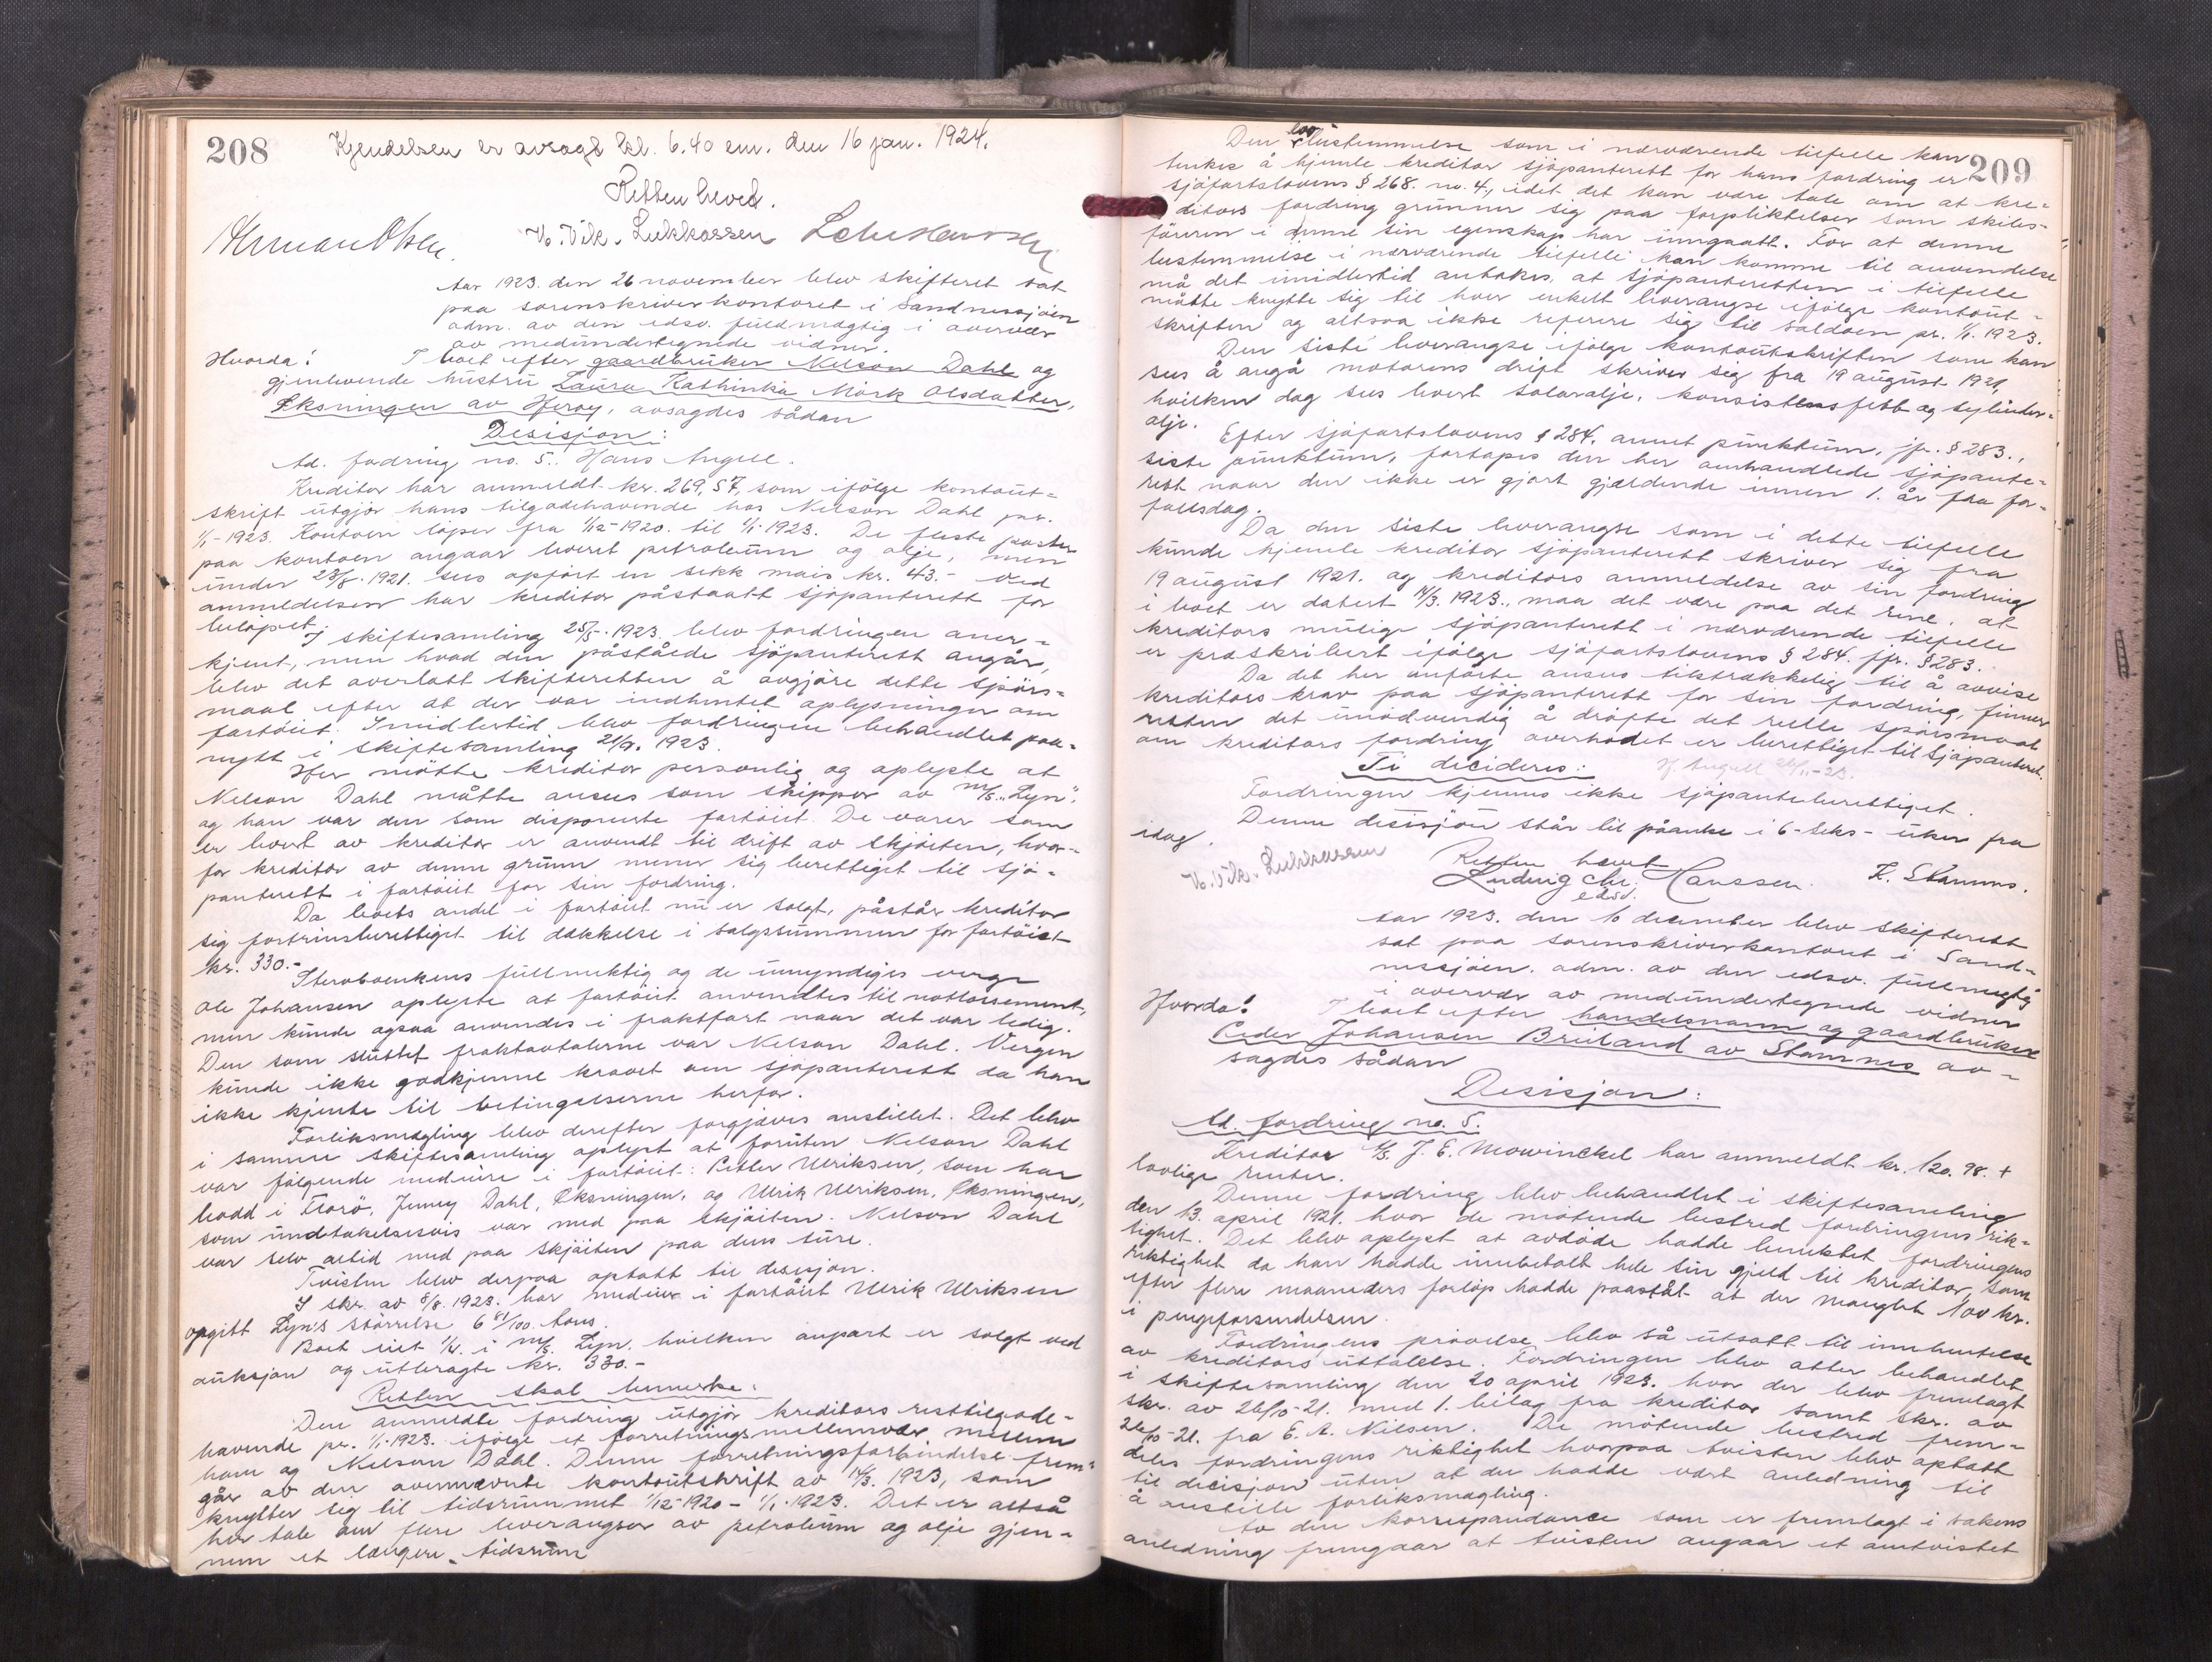 208
Kjendelsen er avsagt kl. 6.40 em. den 16 jan. 1924.
Retten hevet.
Herman Olsen. V. Vik. Lukkassen
Aar 1923. den 26 november blev skifteret sat
paa sorenskriverkontoret i Sandnessjöen
adm. av den edsv. fuldmægtig i overvær
av medundertegnede vidner.
Hvorda! I boet efter gaardbruker Nelson Dahl og
gjenlevende hustru Laura Kathinka Mörk Olsdatter,
Öksningen av Heröy, avsagdes sådan
Desisjon:
Ad. fodring no. 5. Hans Angell.
Kreditor har anmeldt kr. 269,57, som ifölge kontout-
skrift utgjör hans tilgodehavende hos Nelson Dahl pr.
1/1-1923. Kontoen löper fra 1/12-1920. til 1/1-1923. De fleste poster
paa kontoen angaar levert petroleum og olje, men
under 23/8. 1921. sees opfört en sekk mais kr. 43.- Ved
anmeldelsen har kreditor påstaatt sjöpanterett for
belöpet.
I skiftesamling 25/5. 1923. blev fordringen aner-
kjent, men hvad den påståede sjöpanterett angår,
blev det overlatt skifteretten å avgjöre dette spörs-
maal efter at der var indhentet oplysninger om
fartöiet. Imidlertid blev fordringen behandlet paa-
nytt i skiftesamling 21/9. 1923.
Her mötte kreditor personlig og oplyste at
Nelson Dahl måtte ansees som skipper av m/s. "Lyn",
og han var den som disponerte fartöiet. De varer som
er levert av kreditor er anvendt til drift av skjöiten, hvor-
for kreditor av denne grunn mener sig berettiget til sjö-
panterett i fartöiet for sin fordring.
Da boets andel i fartöiet nu er solgt, påstår kreditor
sig fortrinsberettiget til dækkelse i salgssummen for fartöiet
kr. 330.-
Sterboenkens fullmektig og de umyndiges verge
Ole Johansen oplyste at fartöiet anvendtes til notlossement,
men kunde ogsaa anvendes i fraktfart naar det var ledig.
Den som sluttet fraktavtalerne var Nelson Dahl. Vergen
kunde ikke godkjenne kravet om sjöpanterett da han
ikke kjente til betingelserne herfor.
Forliksmegling blev derefter forgjæves anstillet. Det blev
i samme skiftesamling oplyst at foruten Nelson Dahl
var fölgende medeiere i fartöiet: Petter Ulriksen, som har
bodd i Florö, Jenny Dahl, Öksningen, og Ulrik Ulriksen, Öksningen,
som undtakelsesvis var med paa skjöiten. Nelson Dahl
var selv altid med paa skjöiten paa dens ture.
Tvisten blev derpaa optatt til desisjon.
I skr. av 8/8. 1923. har medeier i fartöiet Ulrik Ulriksen
opgitt Lyn's störrelse 6 81/100 tons.
Boet eiet 1/4. i m/s. Lyn, hvilken anpart er solgt ved
auksjon og utbragte kr. 330.-
Retten skal bemerke:
Den anmeldte fordring utgjör kreditors resttilgode-
havende pr. 1/1-1923. ifölge et forretningsmellemvær mellem
ham og Nelson Dahl. Denne forretningsforbindelse frem-
går av den ovennævnte kontoutskrift av 14/3. 1923, som
knytter sig til tidsrummet 1/12-1920 - 1/1-1923. Det er altså
her tale om flere leveranser av petroleum og olje gjen-
nem et længere tidsrum
209
Den lovbestemmelse som i nærværende tilfelle kan
tenkes å hjemle kreditor sjöpanterett for hans fordring er
sjöfartslovens § 268. no. 4, idet det kan være tale om at kre-
ditors fordring grunner sig paa forpliktelser som skibs-
föreren i denne sin egenskap har inngaatt. For at denne
bestemmelse i nærværende tilfelle kan komme til anvendelse
må det imidlertid antakes, at sjöpanteretten i tilfelle
måtte knytte sig til hver enkelt leveranse ifölge kontout-
skriften og altsaa ikke referere sig til saldoen pr. 1/1. 1923.
Den siste leveranse ifölge kontoutskriften som kan
sees å angå motorens drift skriver sig fra 19 august 1921,
hvilken dag sees levert solarolje, konsistensfett og sylinder-
olje.
Efter sjöfartslovens § 284, annet punktum, jfr. § 283.,
siste punktum, fortapes den her omhandlede sjöpante-
rett naar den ikke er gjort gjældende innen 1. år fra for-
fallsdag.
Da den siste leveranse som i dette tilfelle
kunde hjemle kreditor sjöpanterett skriver sig fra
19 august 1921. og kreditors anmeldelse av sin fordring
i boet er datert 14/3. 1923., maa det være paa det rene, at
kreditors mulige sjöpanterett i nærværende tilfelle
er præskribert ifölge sjöfartslovens § 284. jfr. § 283.
Da det her anförte ansees tilstrækkelig til å avvise
kreditors krav paa sjöpanterett for sin fordring, finner
retten det unödvendig å dröfte det reelle spörsmaal
om kreditors fordring overhodet er berettiget til sjöpanterett.
Ti decideres: H. Angell 26/11-23.
Fordringen kjennes ikke sjöpanteberettiget.
Denne desisjon står til påanke i 6-seks- uker fra
idag.
Retten hævet
V. Vik. Lukkassen Ludvig Chr. Hanssen. K. Stamnes.
edsv.
Aar 1923. den 10 december blev skifterett
sat paa sorenskriverkontoret i Sand-
nessjöen. adm. av den edsv. fullmegtig
i overvær av medundertegnede vidner
Hvorda! I boet efter handelsmann og gaardbruker
Peder Johansen Breiland av Stamnes av-
sagdes sådan
Desisjon:
Ad. fordring no. 5.
Kreditor A/S. J. E. Mowinckel har anmeldt kr. 120.98. +
lovlige renter.
Denne fordring blev behandlet i skiftesamling
den 13. april 1921. hvor de mötende bestred fordringens rik-
tighet. Det blev oplyst at avdöde hadde benektet fordringens
riktighet da han hadde innbetalt hele sin gjeld til kreditor, som
efter flere maaneders forlöp hadde paastått at der manglet 100 kr.
i pengeforsendelsen.
Fordringens prövelse blev så utsatt til innhentelse
av kreditors uttalelse. Fordringen blev atter behandlet
i skiftesamling den 20 april 1923. hvor der blev fremlagt
skr. av 26/10-21. med 1. bilag fra kreditor samt skr. av
26/10-21. fra E. A. Nilsen. De mötende bestred frem-
deles fordringens riktighet hvorpaa tvisten blev optatt
til decisjon uten at der hadde vært anledning til
å anstille forliksmegling.
Av den korrespondance som er fremlagt i sakens
anledning fremgaar at tvisten angaar et omtvistet